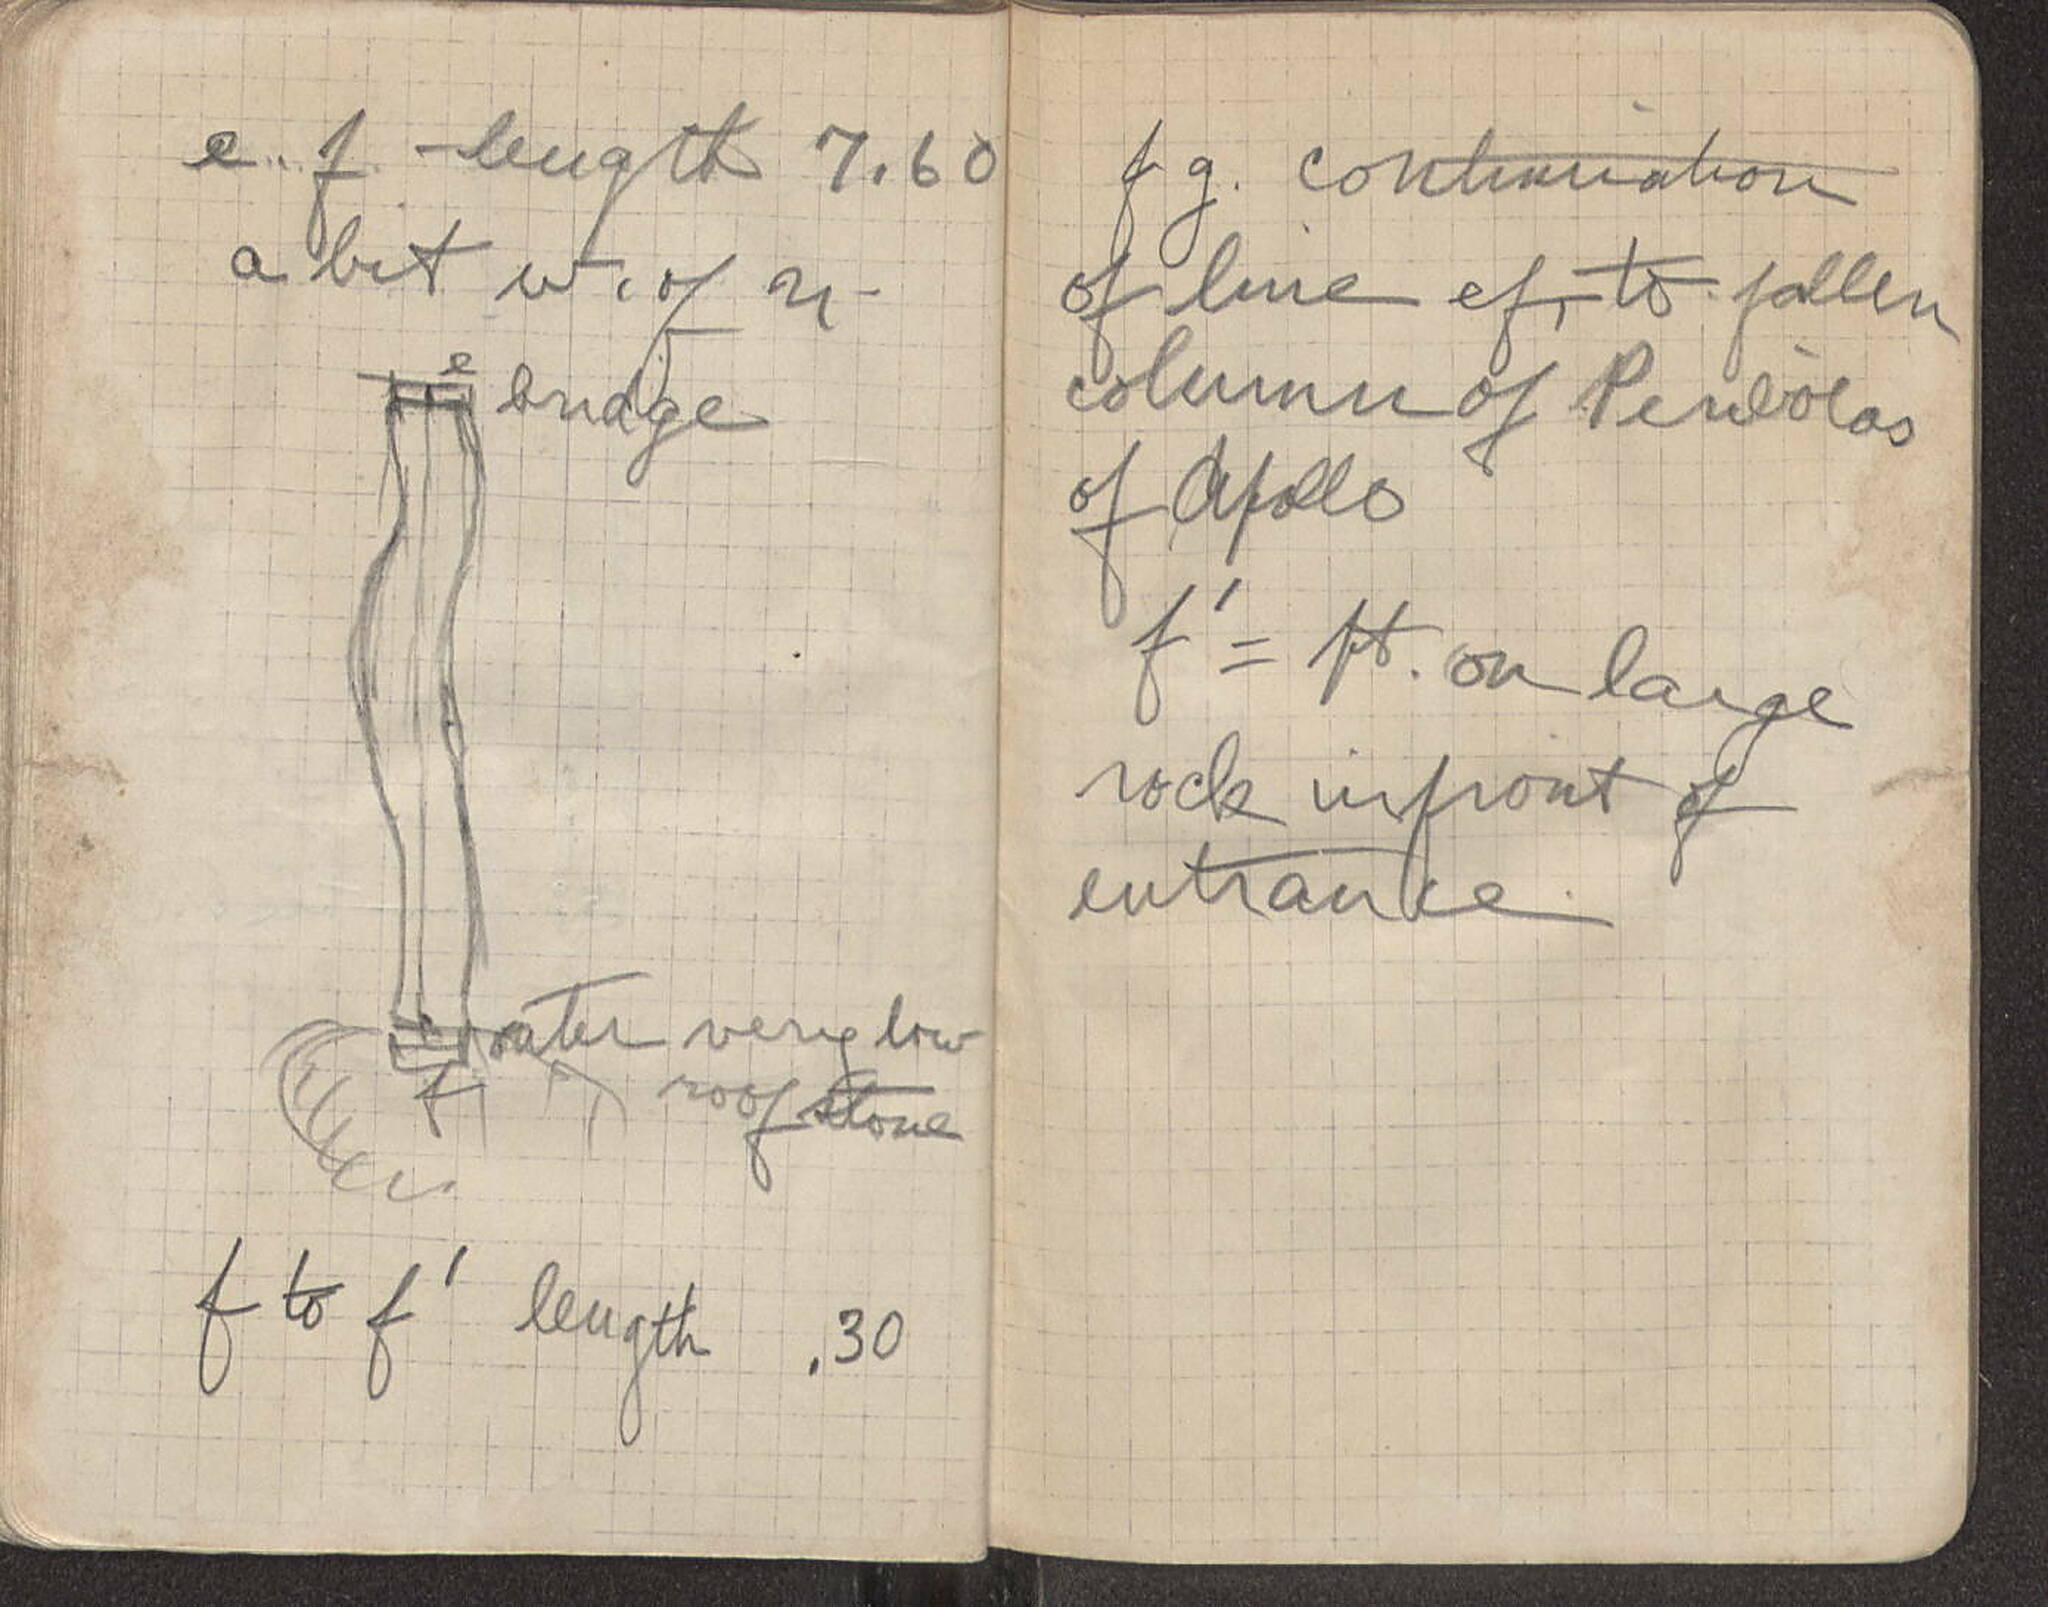 e..f. length 7.60
a bit w. of n-
e
bridge
outer very low
roof stone
f
f to f' length .30
f g. continuation
of line ef, to fallen
column of Peribolas
of Apollo
f' = pt. on large
rock in front of
entrance.